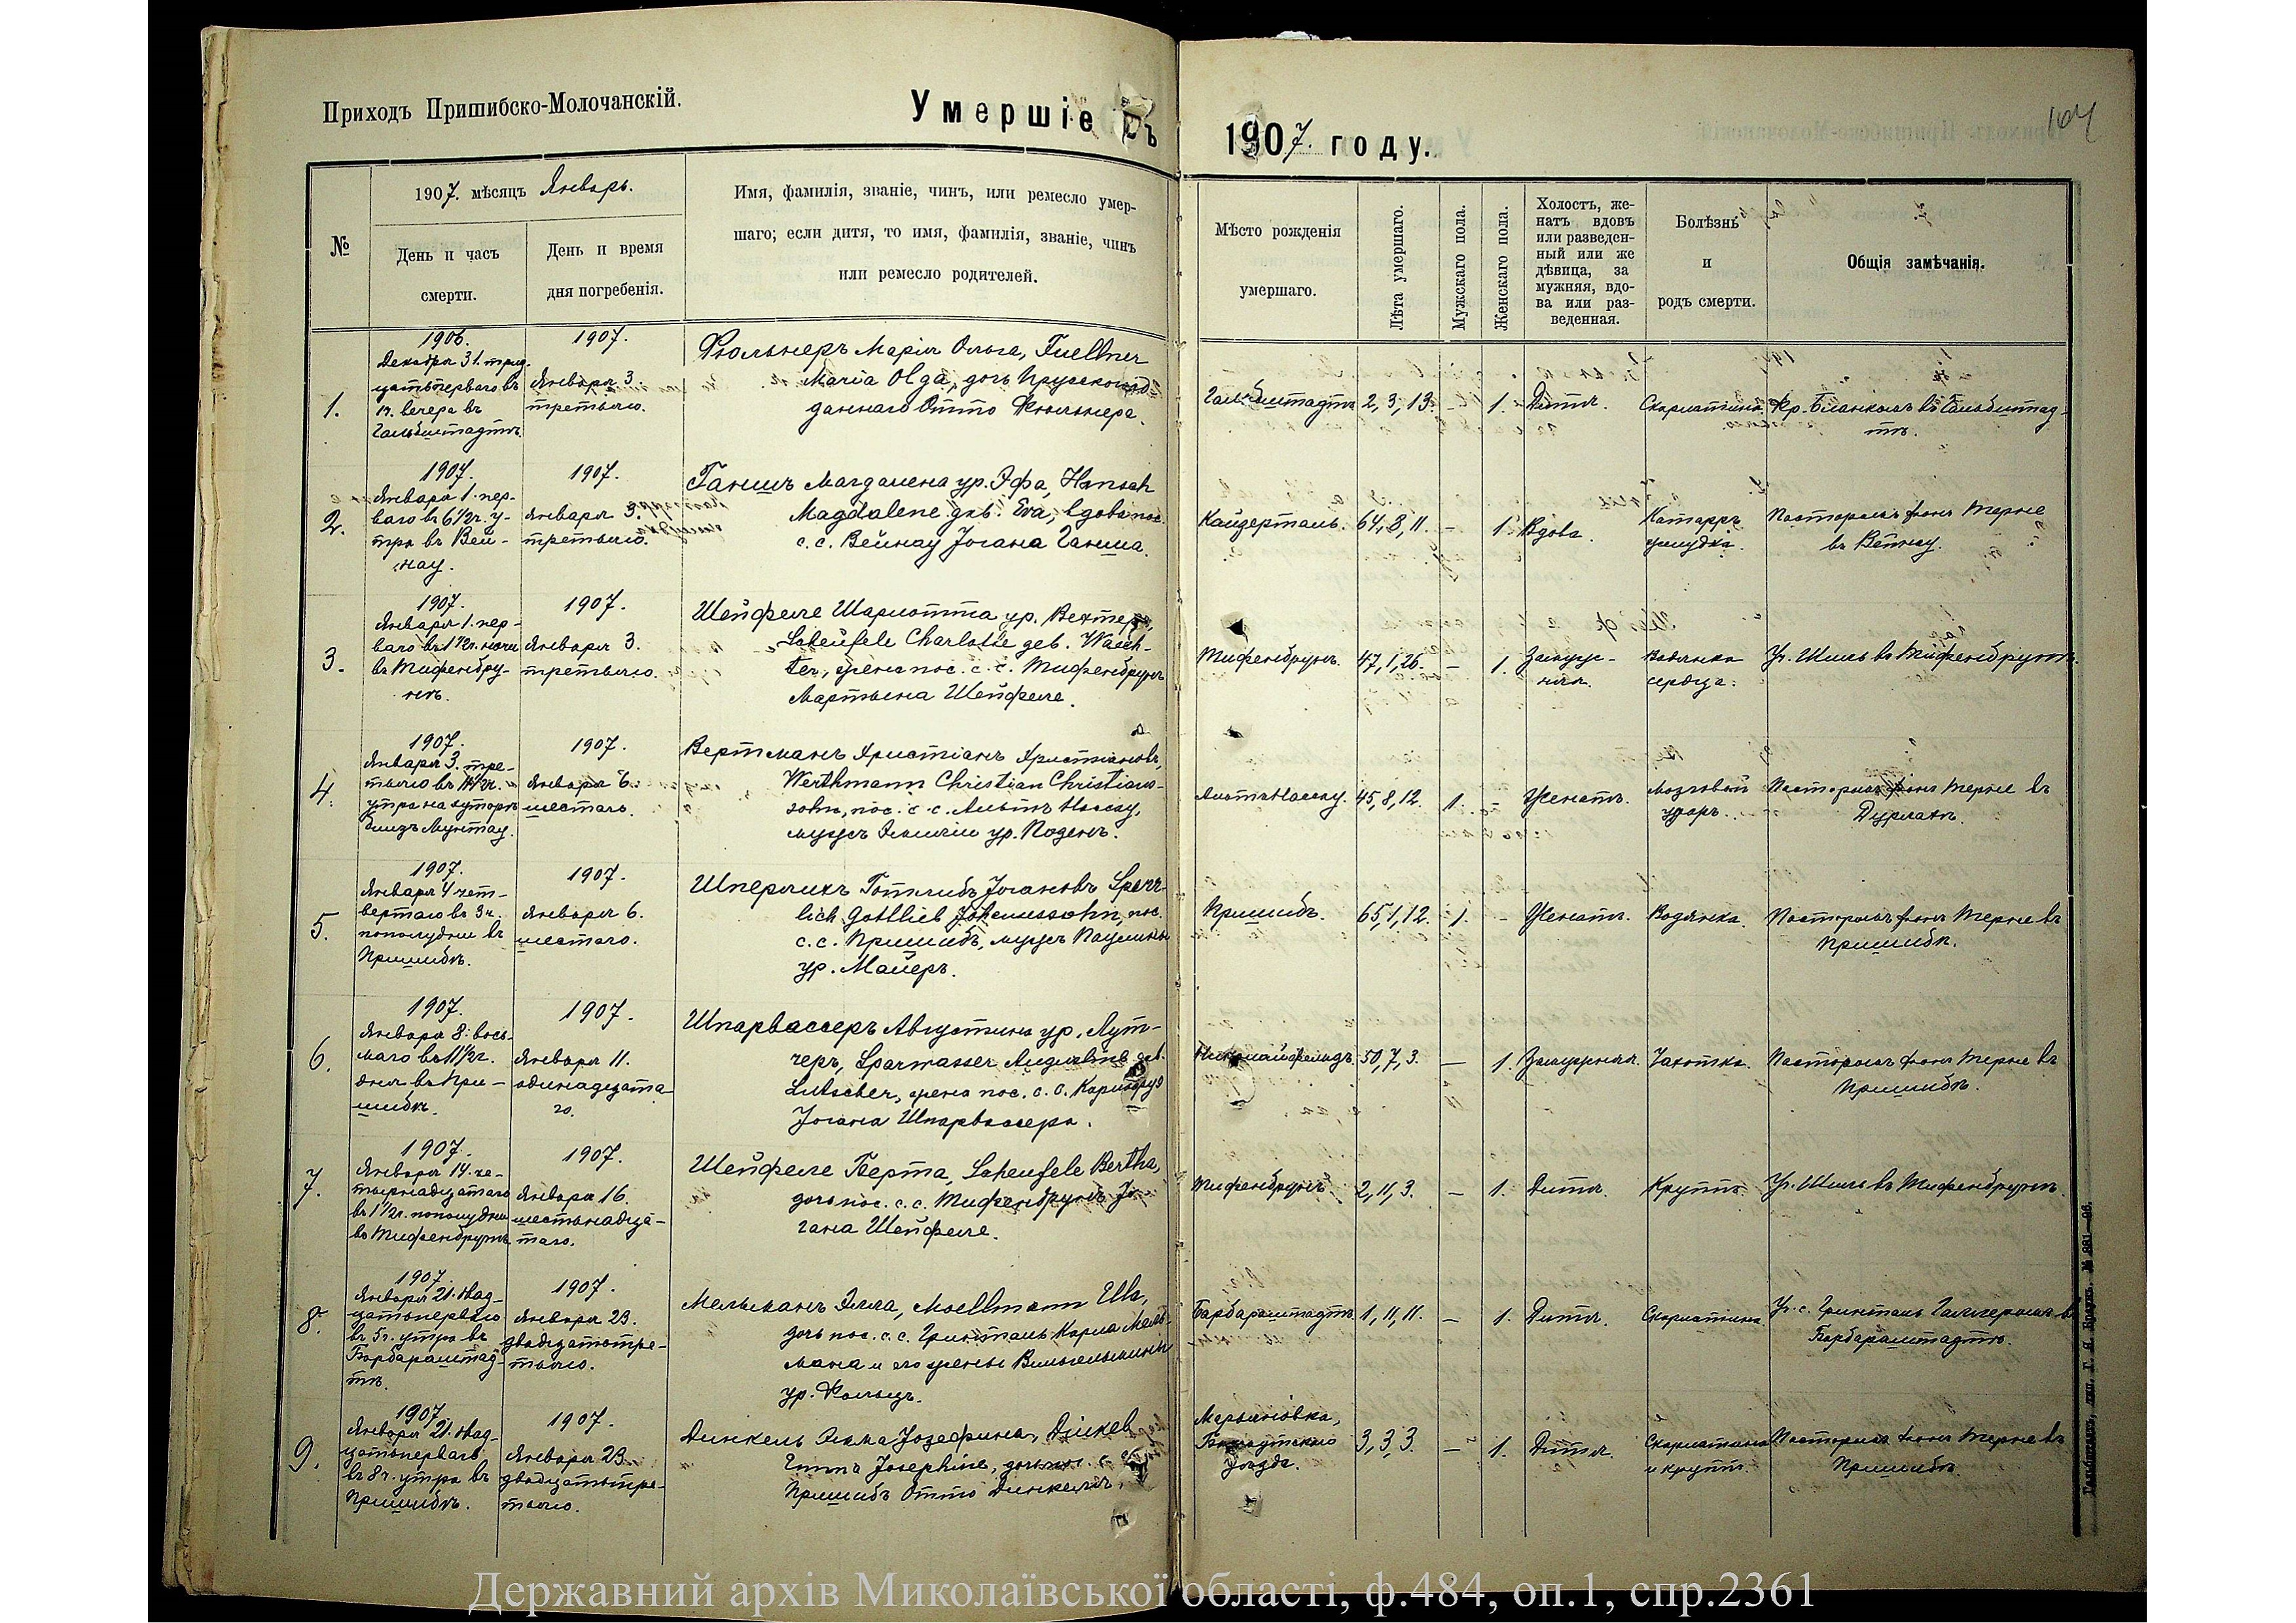 Приходъ Пришибско-Молочанскій.
Умершіе въ
1907. году.
104
№
1907. мѣсяцъ Январь.
День и часъ
смерти.
День и время
дня погребенія.
Имя, фамилія, званіе, чинъ, или ремесло умер-
шаго; если дитя, то имя, фамилія, званіе, чинъ
или ремесло родителей.
Мѣсто рожденія
умершаго.
Лѣта умершаго.
Мужскаго пола.
Женскаго пола.
Холостъ, же-
натъ вдовъ
или разведен-
ный или же
дѣвица, за
мужняя, вдо-
ва или раз-
веденная.
Болѣзнь
и
родъ смерти.
Общія замѣчанія.
1.
1906.
Декабря 31. трид-
цатьперваго въ
вечера въ
Гальбштадтѣ.
1907.
Января 3.
третьяго.
Фюльнеръ Марія Ольга, Fuellner
Maria Olga, дочь Прусскоподд-
даннаго Отто Фюльнера.
Гальбштадтъ
2, 3, 13.
-
1.
Дитя.
Скарлатина.
Кр. Бланкъ въ Гальбштад-
тѣ.
2.
1907.
Января 1. пер-
ваго въ 6 1/2 ч. у-
тра въ Вей-
нау.
1907.
Января 3.
третьяго.
Ганшъ Магдалена ур. Эфа, Hansch
Magdalene geb. Eva, вдова пос.
с. с. Вейнау Іогана Ганша.
Кайзерталь.
64, 8, 11.
-
1.
Вдова.
Катарръ
желудка.
Пасторомъ фонъ Терне
въ Вейнау.
3.
1907.
Января 1. пер-
ваго въ 1 1/2 ч. ночи
въ Тифенбру-
нѣ.
1907.
Января 3.
третьяго.
Шейфеле Шарлотта ур. Вехтеръ,
Scheufele Charlotte geb. Waech-
ter, жена пос. с. с. Тифенбрунъ
Мартына Шейфеле.
Тифенбрунъ.
47, 1, 26.
-
1.
Замуж-
няя.
Водянка
сердца.
Уч. Шиль въ Тифенбрунѣ.
4.
1907.
Января 3. тре-
тьяго въ 11 1/2 ч.
утра на хуторѣ
близъ Мунтау.
1907.
Января 6.
шестаго.
Вертманъ Христіанъ Христіановъ,
Werthmann Christian Christians-
sohn, пос. с. с. Альтъ Нассау,
мужъ Эмиліи ур. Поденъ.
Альтъ Нассау.
45, 8, 12.
1.
-
Женатъ.
Мозговой
ударъ.
Пасторомъ фонъ Терне въ
Дурлахѣ.
5.
1907.
Января 4 чет-
вертаго въ 3 ч.
пополудни въ
Пришибѣ.
1907.
Января 6.
шестаго.
Шперлихъ Готлибъ Іогановъ Sperr-
lich Gottlieb Johannessohn, пос.
с. с. Пришибъ, мужъ Паулины
ур. Майеръ.
Пришибъ.
65, 1, 12.
1.
-
Женатъ.
Водянка.
Пасторомъ фонъ Терне въ
Пришибѣ.
6.
1907.
Января 8. вось-
маго въ 11 1/2 ч.
дня въ При-
шибѣ.
1907.
Января 11.
одинадцата-
го.
Шпарвассеръ Августина ур. Лут-
черъ, Sparwasser Augustine geb.
Lutscher, жена пос. с. с. Карлсруэ
Іогана Шпарвассера.
Николайфельдъ.
50, 7, 3.
-
1.
Замужняя.
Чахотка.
Пасторомъ фонъ Терне въ
Пришибѣ.
7.
1907.
Января 14. че-
тырнадцатаго
въ 1 1/2 ч. пополудни
въ Тифенбрунѣ
1907.
Января 16.
шестьнадца-
таго.
Шейфеле Берта, Scheufele Bertha,
дочь пос. с. с. Тифенбрунъ Іо-
гана Шейфеле.
Тифенбрунъ
2, 11, 3.
-
1.
Дитя.
Круппъ.
Уч. Шиль въ Тифенбрунѣ.
8.
1907.
Января 21. двад-
цатьперваго
въ 5 ч. утра въ
Барбараштад-
тѣ.
1907.
Января 23.
двадцатьтре-
тьяго.
Мельманъ Элла, Moellmann Ella,
дочь пос. с. с. Гринталь Карла Мель-
мана и его жены Вильгельмины
ур. Фольцъ.
Барбараштадтъ
1, 11, 11.
-
1.
Дитя.
Скарлатина
Уч. с. Гринталь въ
Барбараштадтѣ.
9.
1907.
Января 21. двад-
цатьперваго
въ 8 ч. утра въ
Пришибѣ.
1907.
Января 23.
двадцатьтре-
тьяго.
Динкель Эмма Іозефина, Dinkel
Emma Josephine, дочь пос. с. с.
Пришибъ Отто Динкеля.
Марьяновка,
уѣзда.
3, 3, 3.
-
1.
Дитя.
Скарлатина
и круппъ.
Пасторомъ фонъ Терне въ
Пришибѣ.
Державний архів Миколаївської області, ф.484, оп.1, спр.2361